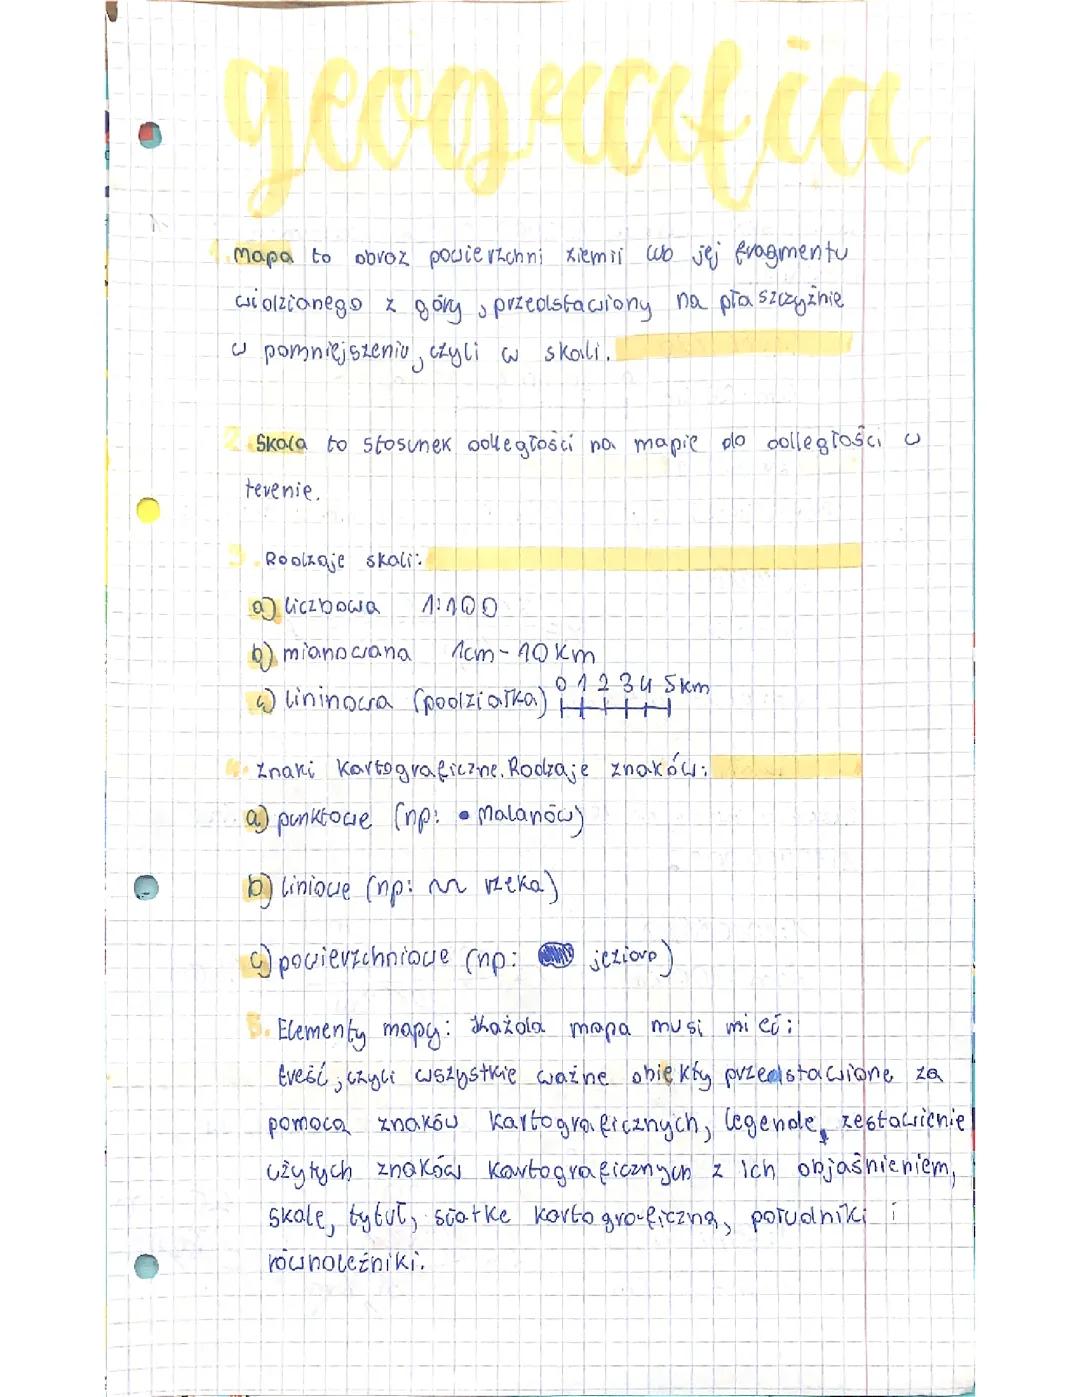 geografia
1. Mapa to obraz powierzchni ziemii lub jej fragmentu
widzianego z góry, przedstawiony na płaszczyźnie
w pomniejszeniu, czyli w skali.
2. Skala to stosunek odległości na mapie do odległości w
terenie.
3. Rodzaje skali:
a) liczbowa 1:100
b) mianowana 1cm - 10 km
0 1 2 3 4 5km
c) lininowa (podziałka)
4. Znaki kartograficzne. Rodzaje znaków:
a) punktowe (np: • Malanów)
b) liniowe (np: rzeka)
c) powierzchniowe (np: jezioro)
5. Elementy mapy: Każda mapa musi mieć:
treść, czyli wszystkie ważne obiekty przedstawione za
pomocą znaków kartograficznych, legende, zestawienie
użytych znaków kartograficznych z ich objaśnieniem,
skale, tytuł, siatke kartograficzną, południki i
równoleżniki.